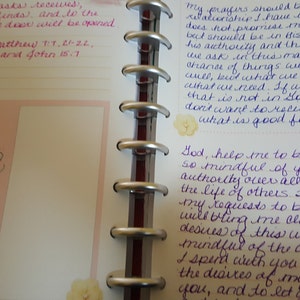 asks receives,
finds, and to the
door will be opened
Matthew 7:7, 21-22,
and John 15:7
my prayers should b
relationship I have
does not promise m
but should be in
his authority and th
we ask in this ma
chance of things w
well, but what we
what we need. If a
that is not in G
what is good f
God, help me to b
so mindful of y
authority over all
the life of others. S
my requests to b
will bring me cl
desires of this w
mindful of the
I spend with you
the desires of m
you, and to let